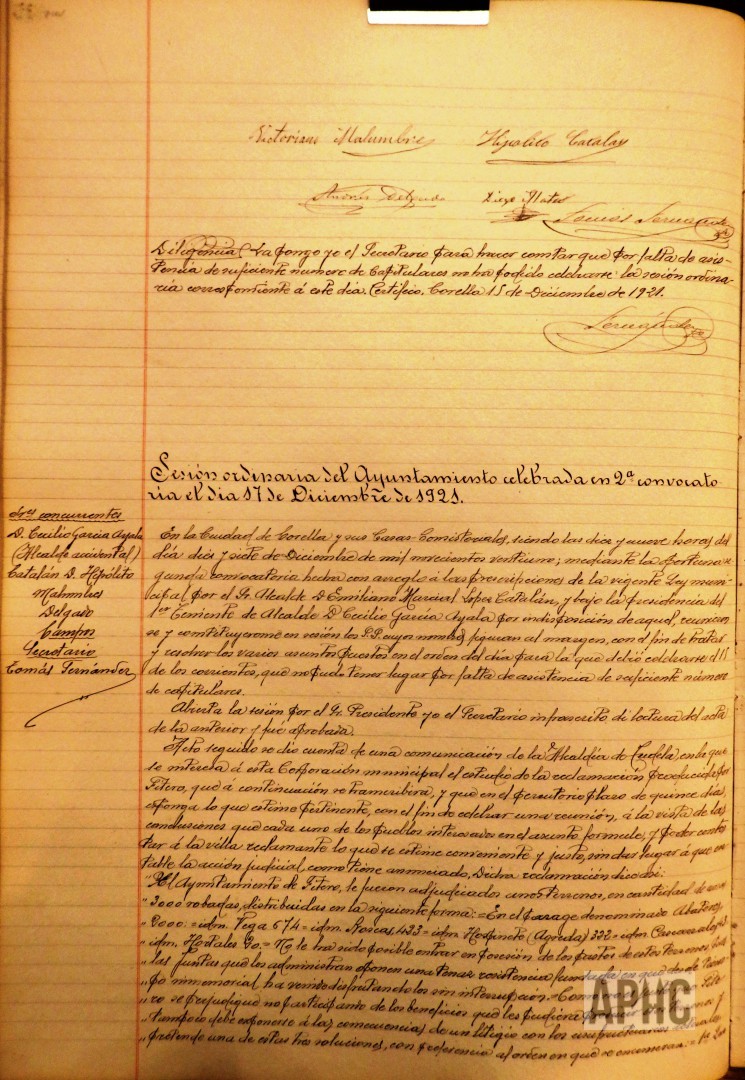 Victoriano Malumbres Hipolito Catalan
Andrés Delgado Diego Mateo
Tomás Fernández
Diligencia) La pongo yo el Secretario para hacer constar que por falta de asis-
tencia de suficiente número de Capitulares no ha podido celebrarse la sesión ordina-
ria correspondiente á este dia. Certifico. Corella 15 de Diciembre de 1921.
Fernández
Sesión ordinaria del Ayuntamiento celebrada en 2ª convocato
ria el dia 17 de Diciembre de 1921.
Sres concurrentes
D. Cecilio Garcia Ayala
(Alcalde accidental)
Catalán D. Hipólito
Malumbres
Delgado
Campos
Secretario
Tomás Fernández
En la Ciudad de Corella y sus Casas-Consistoriales, siendo las diez y nueve horas del
dia diez y siete de Diciembre de mil novecientos veintiuno; mediante la oportuna se-
gunda convocatoria hecha con arreglo á las prescripciones de la vigente Ley muni-
cipal por el Sr. Alcalde D. Emiliano Marcial Lopez Catalán, y bajo la presidencia del
1er Teniente de Alcalde D. Cecilio García Ayala por indisposición de aquel, reunieron
se y constituyeron en sesión los S.S. cuyos nombres figuran al margen, con el fin de tratar
y resolver los varios asuntos puestos en el orden del dia para la que debió celebrarse el 15
de los corrientes, que no pudo tener lugar por falta de asistencia de suficiente número
de capitulares.
Abierta la sesión por el Sr. Presidente yo el Secretario infrascrito di lectura del acta
de la anterior y fué aprobada.
Acto seguido se dio cuenta de una comunicación de la Alcaldia de en la que
se interesa á esta Corporación municipal el estudio de la reclamación producida por
Fitero, que á continuación se transcribirá, y que en el perentorio plazo de quince dias,
exponga lo que estime pertinente, con el fin de celebrar una reunión, á la vista de las
conclusiones que cada uno de los pueblos interesados en el asunto formule, y poder contes
tar á la villa reclamante lo que se estime conveniente y justo, sin dar lugar á que en
table la acción judicial, como tiene anunciado. Dicha reclamación dice asi:
"Al Ayuntamiento de Fitero, le fueron adjudicados unos terrenos, en cantidad de
" robadas, distribuidas en la siguiente forma: = En el parage denominado
" = idm. Vega 674 = idm. 433 = idm. (Agreda) 332 = idm.
" idm. Hostales 90. = No le ha sido posible entrar en posesión de los frutos de estos terrenos,
" las juntas que los administran oponen una tenaz resistencia fundada en que desde tiem
" po inmemorial ha venido disfrutandolos sin interrupción. =
" ro se perjudique no participando de los beneficios que les pudiera
" tampoco debe exponerse á las consecuencias de un litigio con los usufructuarios actuales
" pretende una de estas tres soluciones, con preferencia al orden en que se enumeran: =
APHC